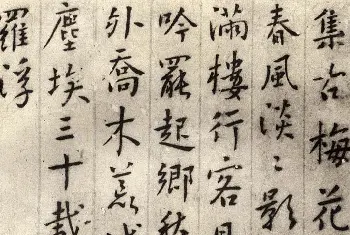 集古梅花
春風淡〻影
滿樓行客
吟罷起鄉愁
外喬木
塵埃三十載
羅浮